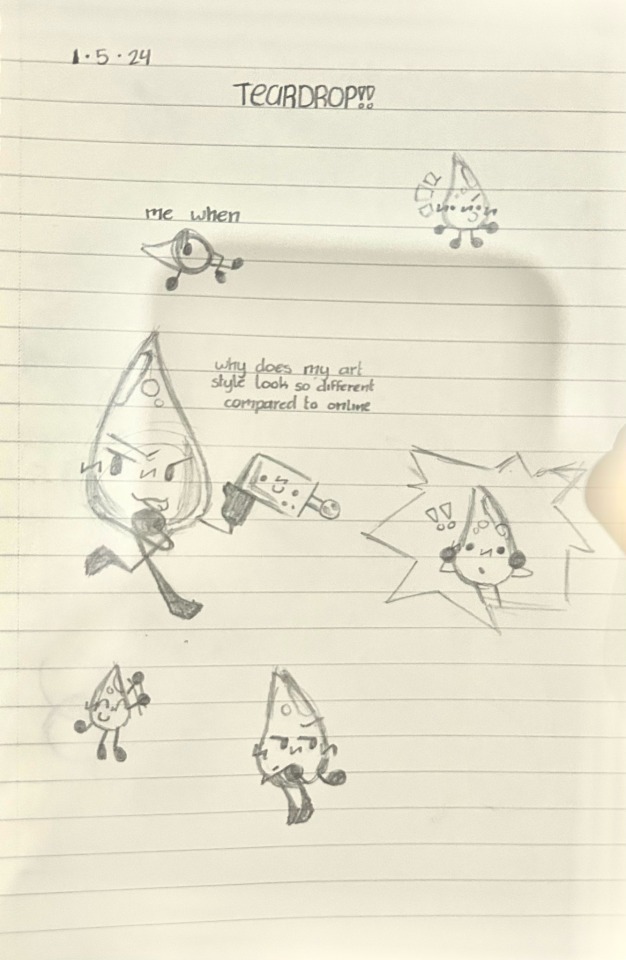 1·5·24
TEARDROP!!
me when
why does my art
style look so different
compared to online
!!